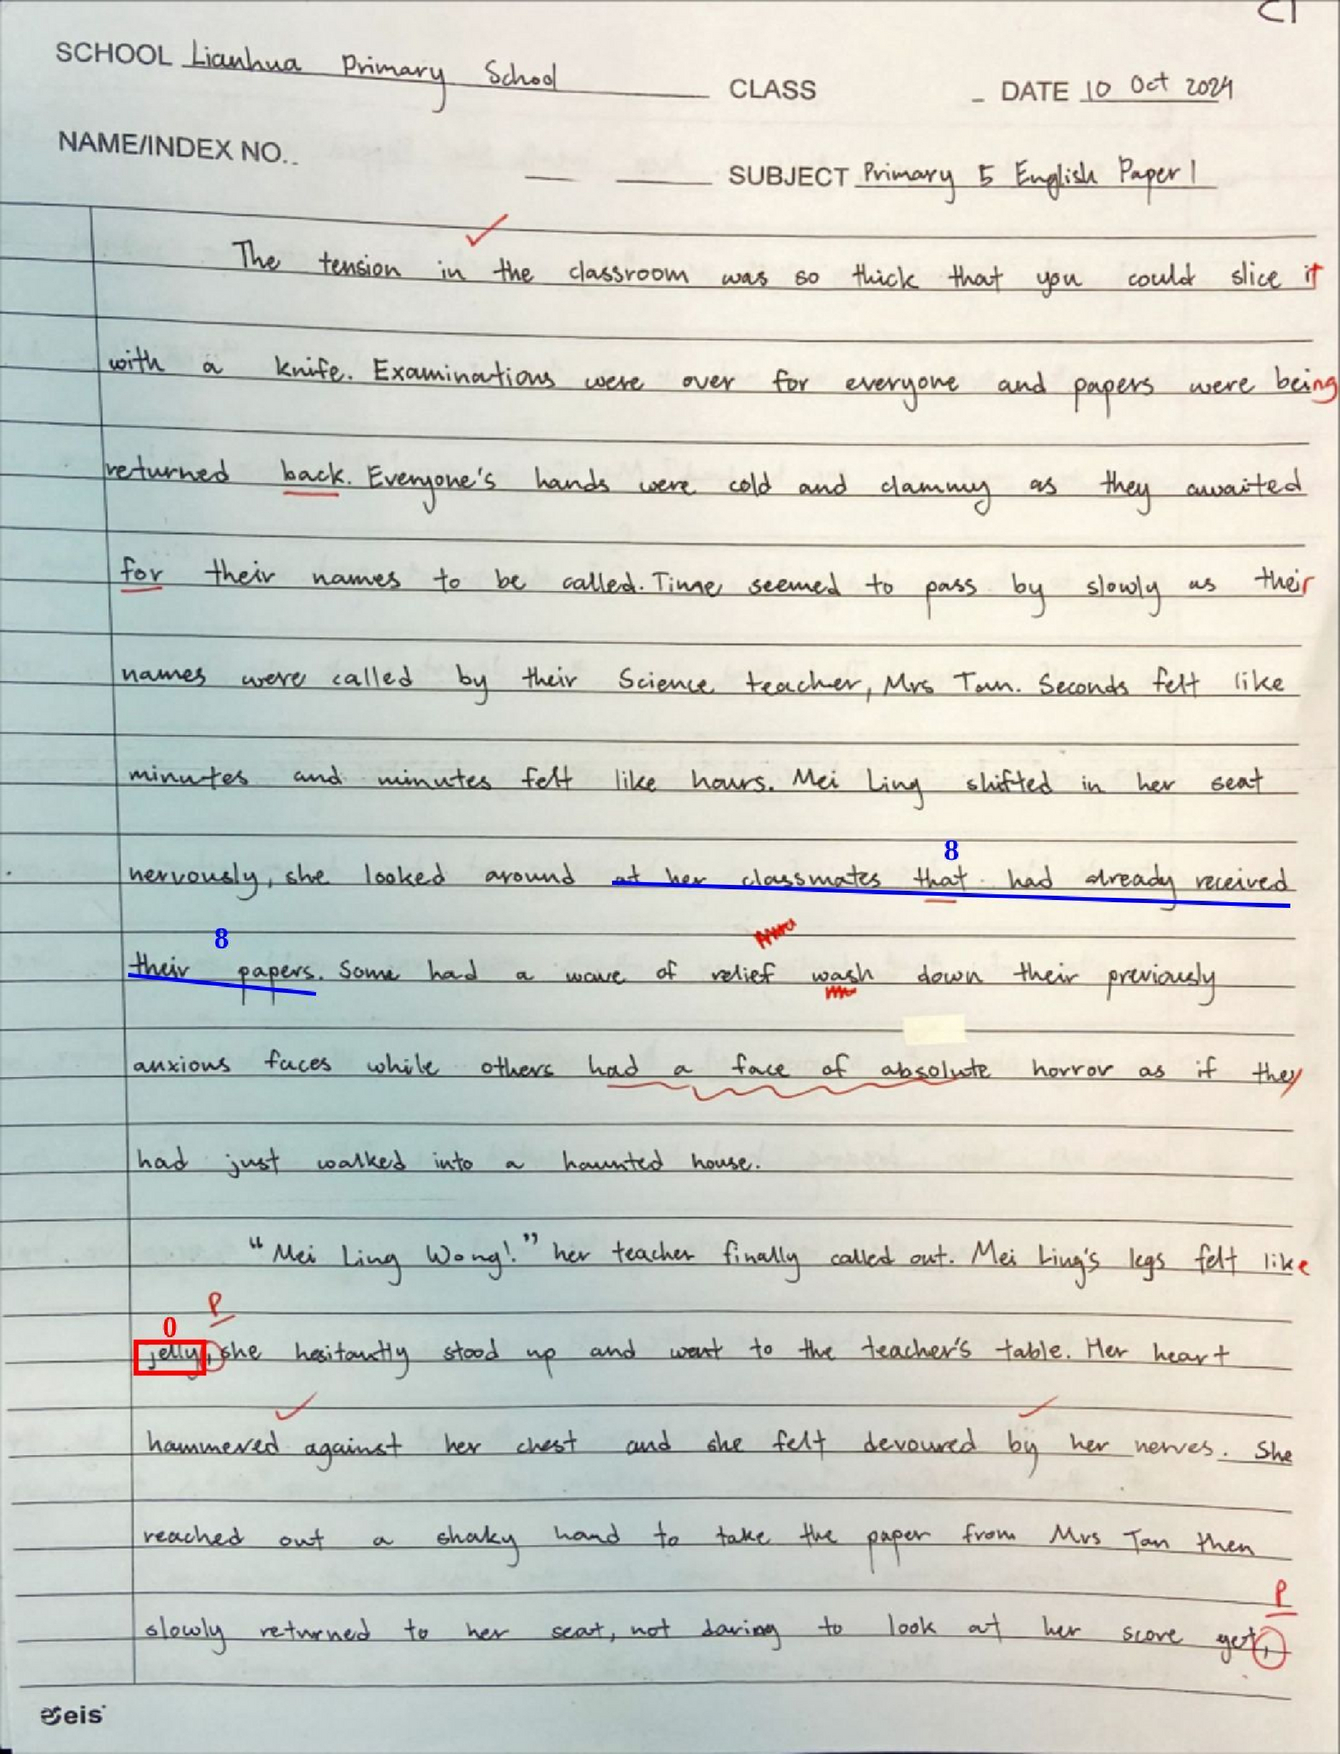 C1
SCHOOL Lianhua Primary School CLASS DATE 10 Oct 2024
NAME/INDEX NO. SUBJECT Primary 5 English Paper 1
The tension in the classroom was so thick that you could slice it
with a knife. Examinations were over for everyone and papers were being
returned back. Everyone's hands were cold and clammy as they awaited
for their names to be called. Time seemed to pass by slowly as their
names were called by their Science teacher, Mrs Tan. Seconds felt like
minutes and minutes felt like hours. Mei Ling shifted in her seat
8
nervously, she looked around at her classmates that had already received
8
their papers. Some had a wave of relief wash down their previously
anxious faces while others had a face of absolute horror as if they
had just walked into a haunted house.
"Mei Ling Wong!" her teacher finally called out. Mei Ling's legs felt like
P
0
jelly, she hesitantly stood up and went to the teacher's table. Her heart
hammered against her chest and she felt devoured by her nerves. She
reached out a shaky hand to take the paper from Mrs Tan then
P
slowly returned to her seat, not daring to look at her score yet,
eis